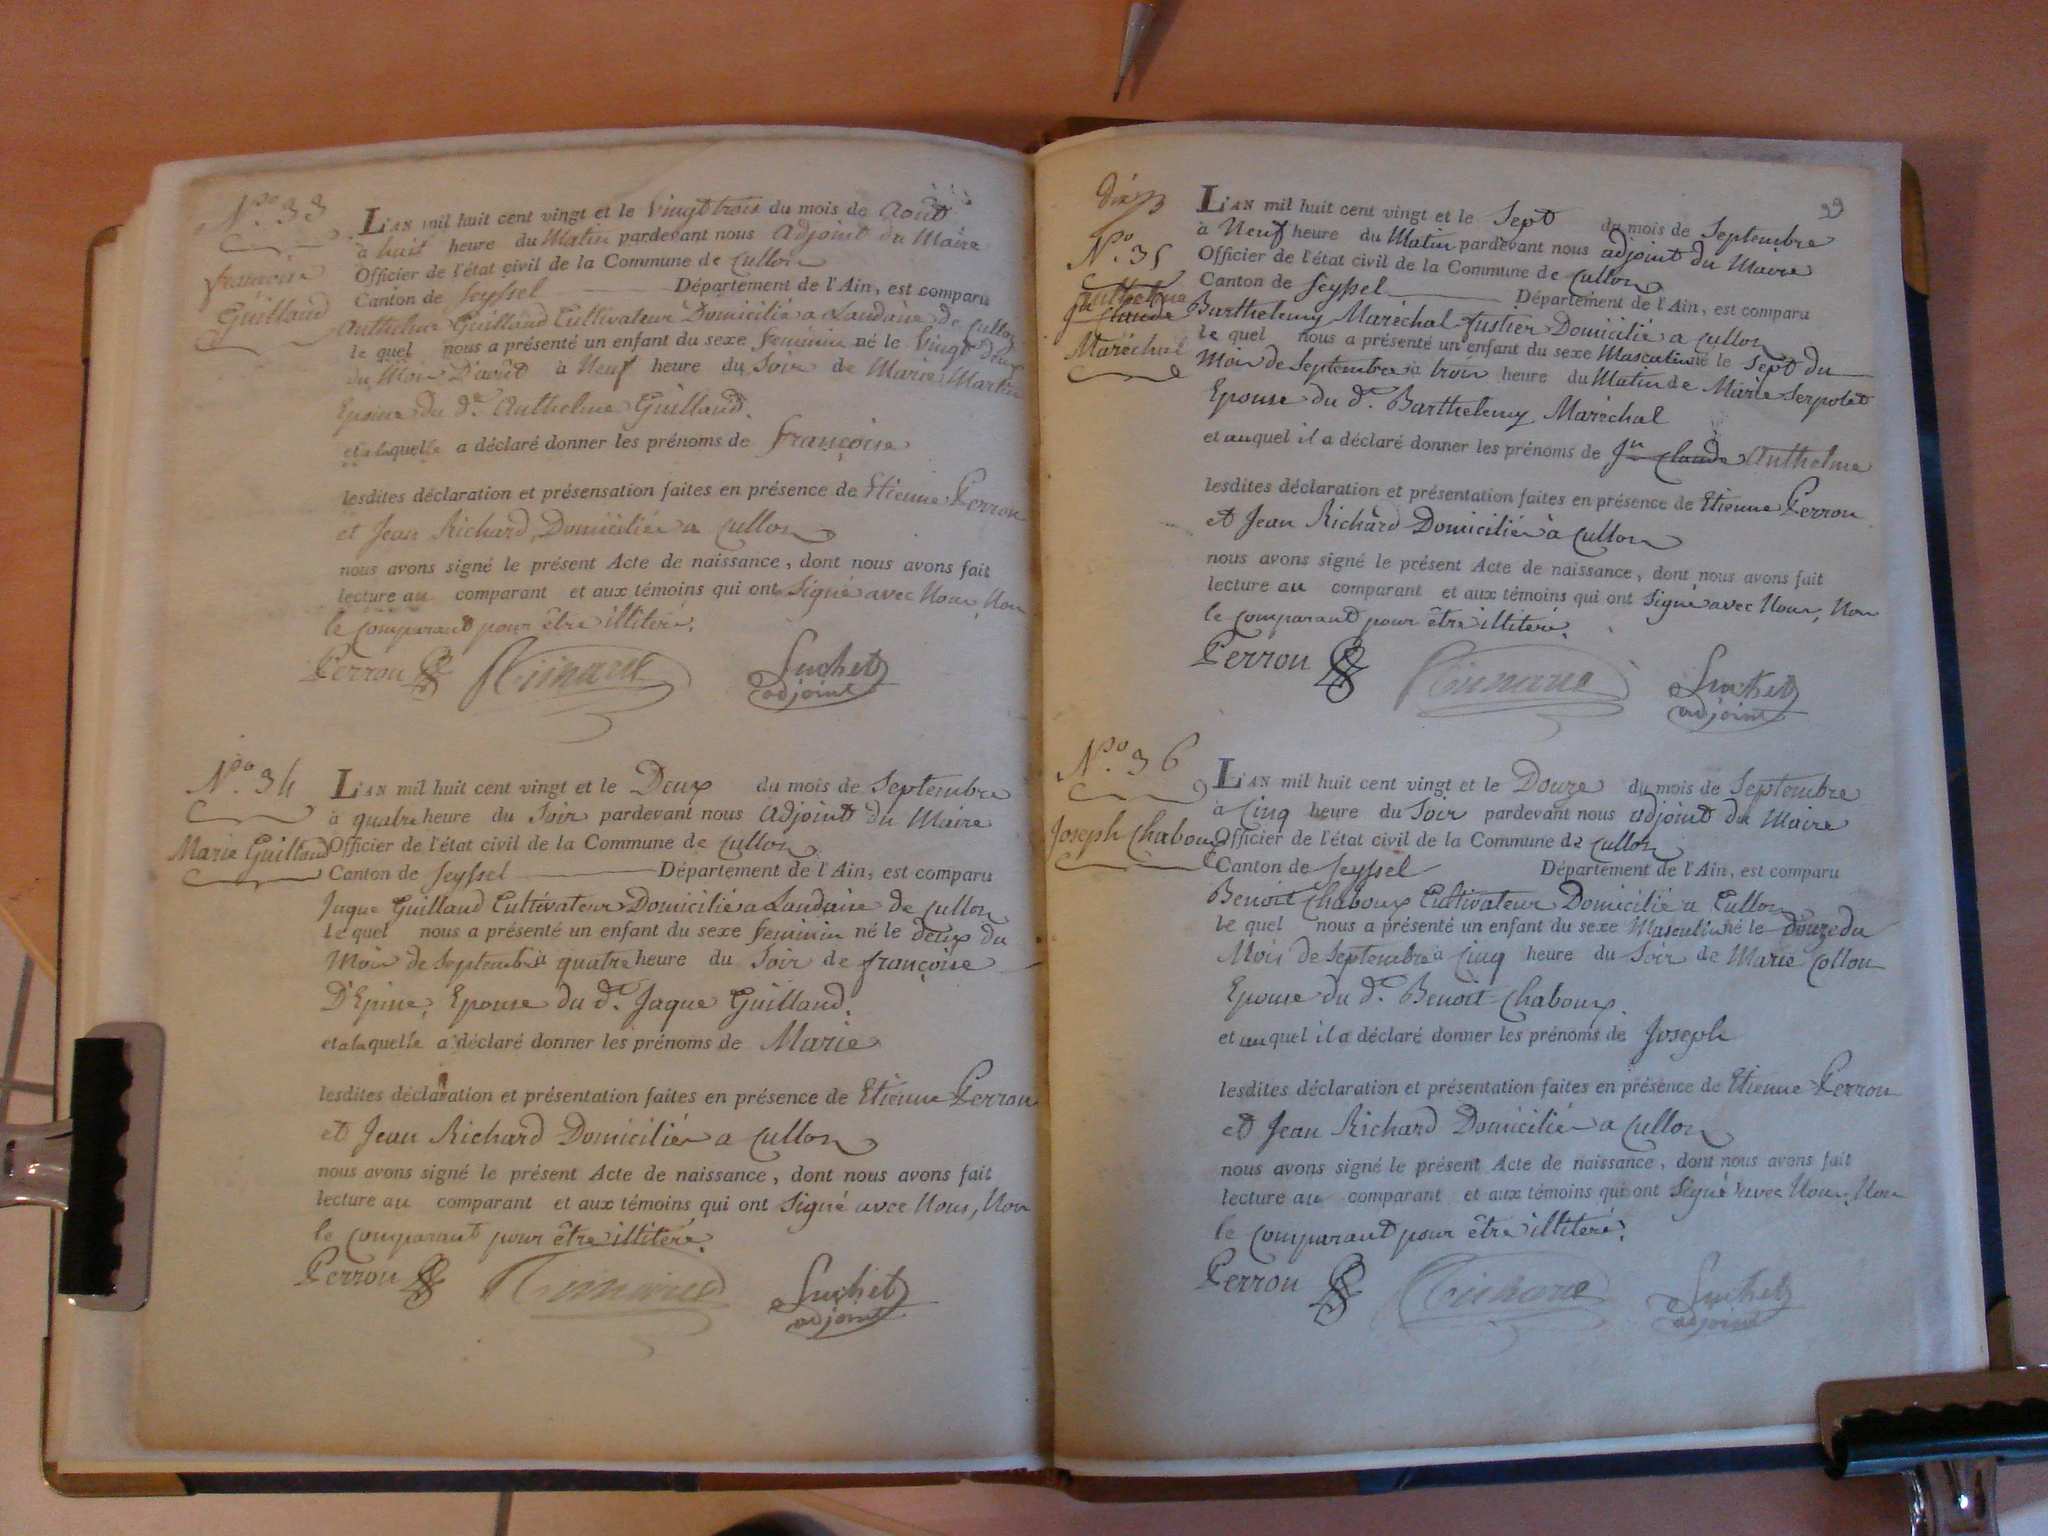 N.º 33
françoise
Guilland
L'AN mil huit cent vingt et le Vingt trois du mois de Août
à huit heure du Matin pardevant nous Adjoint du Maire
Officier de l'état civil de la Commune de Cullon
Canton de Seyssel Département de l'Ain, est comparu
Anthelme Guilland Cultivateur Domicilié a Landaise de Cullon
le quel nous a présenté un enfant du sexe feminin né le Vingt deux
du Mois D'août à Neuf heure du Soir de Marie Martin
Epouse du d.t Anthelme Guilland.
et a laquelle a déclaré donner les prénoms de françoise
lesdites déclaration et présensation faites en présence de Etienne Perrou
et Jean Richard, Domiciliés a Cullon
nous avons signé le présent Acte de naissance, dont nous avons fait
lecture au comparant et aux témoins qui ont Signé avec Nous, Non
le Comparant pour être illitéré.
Perrou Richard Suchet
adjoint
N.º 34
Marie Guilland
L'AN mil huit cent vingt et le Deux du mois de Septembre
à quatre heure du Soir pardevant nous Adjoint du Maire
Officier de l'état civil de la Commune de Cullon
Canton de Seyssel Département de l'Ain, est comparu
Jaque Guilland Cultivateur Domicilié a Landaise de Cullon
le quel nous a présenté un enfant du sexe feminin né le deux du
Mois de Septembre à quatre heure du Soir de françoise
D'Epine, Epouse du d.t Jaque Guilland.
et a laquelle a déclaré donner les prénoms de Marie
lesdites déclaration et présentation faites en présence de Etienne Perrou
et Jean Richard Domiciliés a Cullon
nous avons signé le présent Acte de naissance, dont nous avons fait
lecture au comparant et aux témoins qui ont Signé avec Nous, Non
le Comparant pour être illitéré.
Perrou Richard Suchet
adjoint
99
N.º 35
Anthelme
J.n Claude
Maréchal
L'AN mil huit cent vingt et le Sept du mois de Septembre
à Neuf heure du Matin pardevant nous adjoint du Maire
Officier de l'état civil de la Commune de Cullon
Canton de Seyssel Département de l'Ain, est comparu
Barthelemy Maréchal fustier Domicilié a Cullon
le quel nous a présenté un enfant du sexe Masculin né le Sept du
Mois de Septembre à trois heure du Matin de Marie Serpolet
Epouse du d.t Barthelemy Maréchal
et auquel il a déclaré donner les prénoms de J.n Claude Anthelme
lesdites déclaration et présentation faites en présence de Etienne Perrou
et Jean Richard Domiciliés à Cullon
nous avons signé le présent Acte de naissance, dont nous avons fait
lecture au comparant et aux témoins qui ont Signé avec Nous, Non
le Comparant pour être illitéré.
Perrou Richard Suchet
adjoint
N.º 36
Joseph Chaboux
L'AN mil huit cent vingt et le Douze du mois de Septembre
à Cinq heure du Soir pardevant nous adjoint du Maire
Officier de l'état civil de la Commune de Cullon
Canton de Seyssel Département de l'Ain, est comparu
Benoit Chaboux Cultivateur Domicilié a Cullon
le quel nous a présenté un enfant du sexe Masculin né le douze du
Mois de Septembre à Cinq heure du Soir de Marie Collon
Epouse du d.t Benoit Chaboux.
et auquel il a déclaré donner les prénoms de Joseph
lesdites déclaration et présentation faites en présence de Etienne Perrou
et Jean Richard Domiciliés a Cullon
nous avons signé le présent Acte de naissance, dont nous avons fait
lecture au comparant et aux témoins qui ont Signé avec Nous, Non
le Comparant pour être illitéré.
Perrou Richard Suchet
adjoint